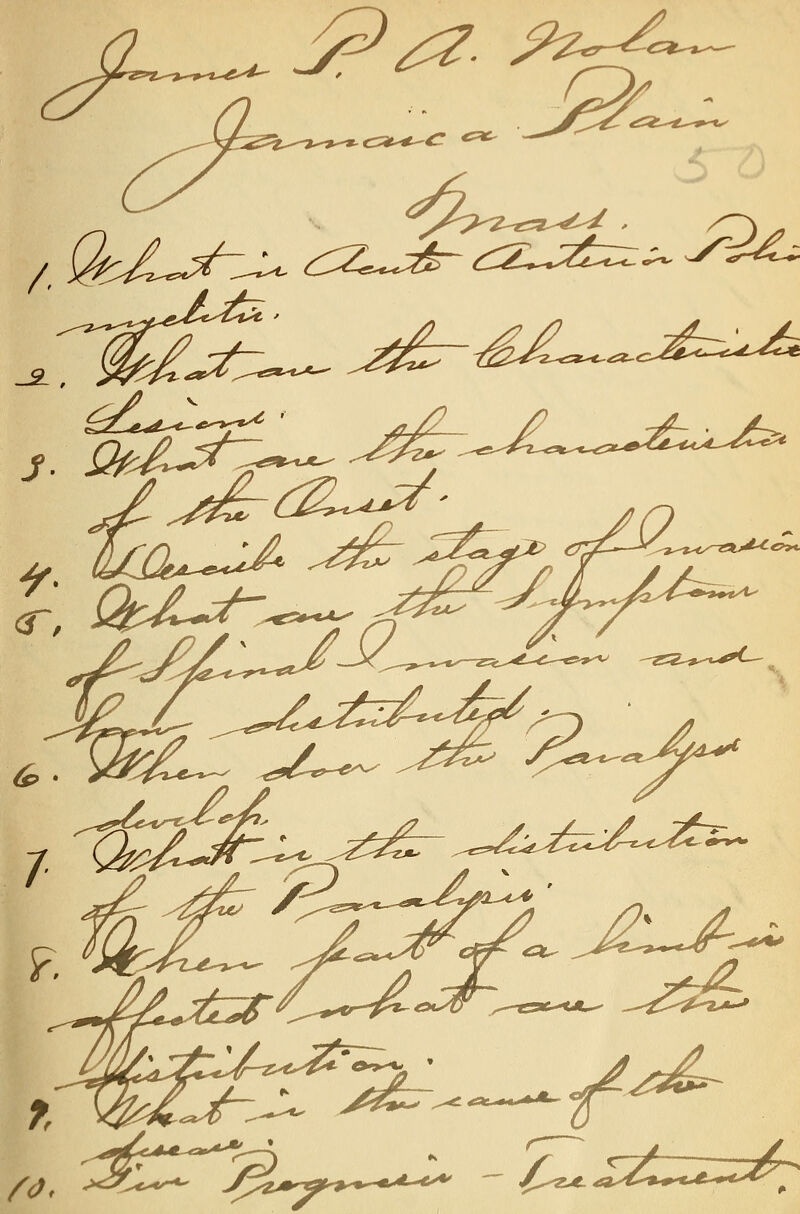 James P. A. Nolan
Jamaica Plain
50
Mass.
1. What is Acute Anterior Polio
myelitis.
2. What are the Characteristic
Lesions.
3. What are the characteristics
of the Onset.
4. Describe the stage of Invasion
5. What are the Symptoms
of Spinal Invasion and
how distributed.
6. When does the Paralysis
develop
7. What is the distribution
of the Paralysis.
8. When part of a limb is
affected what are the
distribution.
9. What is the cause of the
disease.
10. Give Prognosis - Treatment.